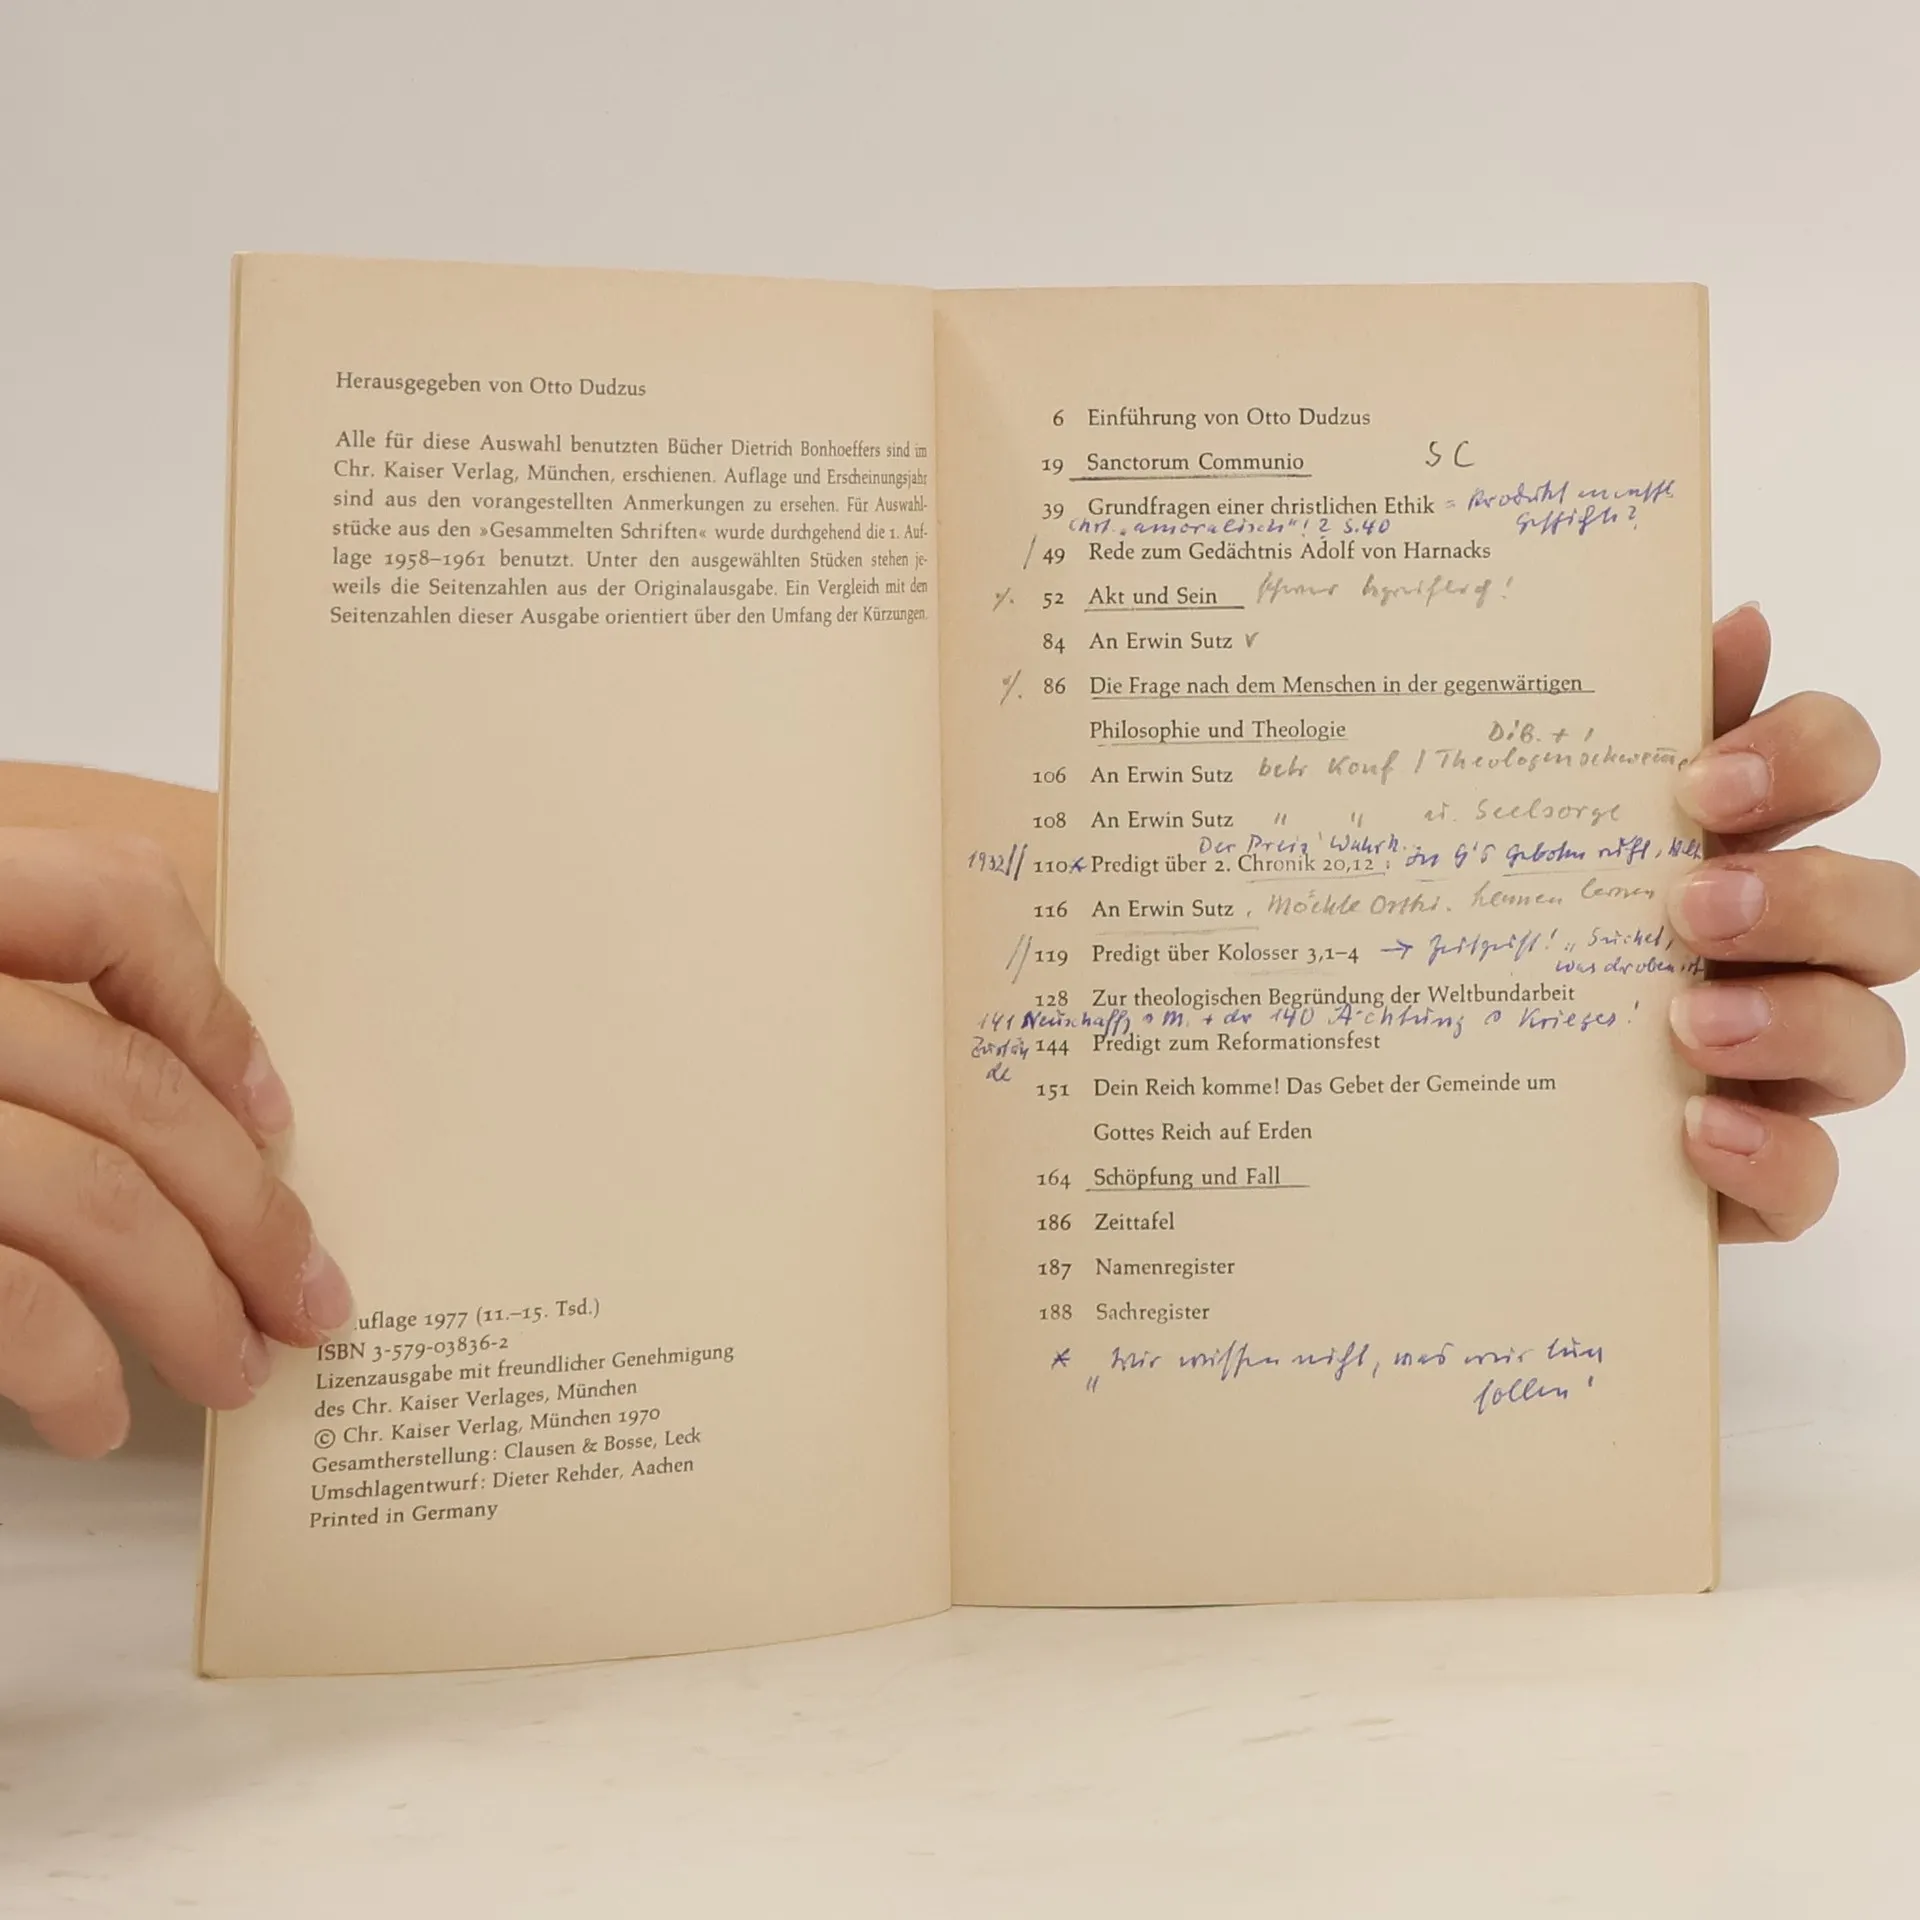 Herausgegeben von Otto Dudzus
Alle für diese Auswahl benutzten Bücher Dietrich Bonhoeffers sind im
Chr. Kaiser Verlag, München, erschienen. Auflage und Erscheinungsjahr
sind aus den vorangestellten Anmerkungen zu ersehen. Für Auswahl-
stücke aus den »Gesammelten Schriften« wurde durchgehend die 1. Auf-
lage 1958–1961 benutzt. Unter den ausgewählten Stücken stehen je-
weils die Seitenzahlen aus der Originalausgabe. Ein Vergleich mit den
Seitenzahlen dieser Ausgabe orientiert über den Umfang der Kürzungen.
uflage 1977 (11.–15. Tsd.)
ISBN 3-579-03836-2
Lizenzausgabe mit freundlicher Genehmigung
des Chr. Kaiser Verlages, München
© Chr. Kaiser Verlag, München 1970
Gesamtherstellung: Clausen & Bosse, Leck
Umschlagentwurf: Dieter Rehder, Aachen
Printed in Germany
6 Einführung von Otto Dudzus
19 Sanctorum Communio SC
39 Grundfragen einer christlichen Ethik = Produkt
Chrl. „amoralisch"! ? S.40
49 Rede zum Gedächtnis Adolf von Harnacks
52 Akt und Sein schwer begreiflich!
84 An Erwin Sutz
86 Die Frage nach dem Menschen in der gegenwärtigen
Philosophie und Theologie
106 An Erwin Sutz betr Konf
108 An Erwin Sutz " " Seelsorge
Der Preis Wahrh.
1932 110* Predigt über 2. Chronik 20,12
116 An Erwin Sutz, Möchte kennen lernen
119 Predigt über Kolosser 3,1–4 → Zeitgeist! „Suchet,
was droben ist
128 Zur theologischen Begründung der Weltbundarbeit
141 140 Ächtung Krieges!
144 Predigt zum Reformationsfest
151 Dein Reich komme! Das Gebet der Gemeinde um
Gottes Reich auf Erden
164 Schöpfung und Fall
186 Zeittafel
187 Namenregister
188 Sachregister
* „Wir wissen nicht, was wir tun
sollen'